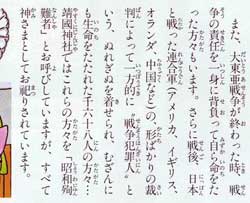 また、大東亜戦争が終わった時、戦
争の責任を一身に背負って自ら命をた
った方々もいます。さらに戦後、日本
と戦った連合軍(アメリカ、イギリス、
オランダ、中国など)の、形ばかりの裁
判によって一方的に〝戦争犯罪人〟と
いう、ぬれぎぬを着せられ、むざんに
も生命をたたれた千六十八人の方々、
靖國神社ではこれらの方々を「昭和殉
難者」とお呼びしていますが、すべて
神さまとしてお祀りされています。